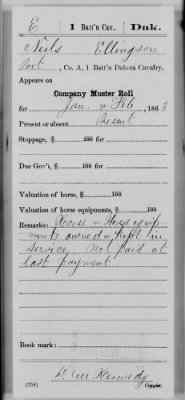 E 1 Batt'n Cav. Dak.
Neils Ellingson
Pvt, Co. A, 1 Batt'n Dakota Cavalry.
Appears on
Company Muster Roll
for Jan. & Feb, 1863
Present or absent Present
Stoppage, $ 100 for
Due Gov't, $ 100 for
Valuation of horse, $ 100
Valuation of horse equipments, $ 100
Remarks: Horse & Horse equip
ments owned & kept in
service. Not paid at
last payment
Book mark:
Kennedy
(358) Copyist.